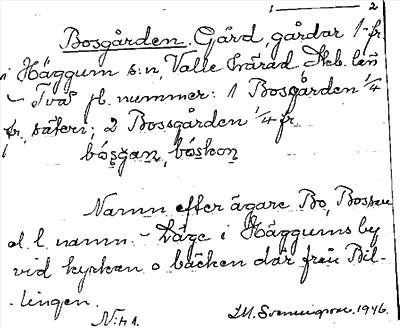 1 — 2
Bosgården. Gård, gårdar 1 fr
i Häggum s:n, Valle härad Skb. län
- Två jb. nummer: 1 Bosgården 1/4
fr, säteri; 2 Bossgården 1/4 fr
bósgan, bóskon
Namn efter ägare Bo, Bosson
el. l. namn. - Läge i Häggums by
vid kyrkan o bäcken där från Bil-
lingen.
1946.